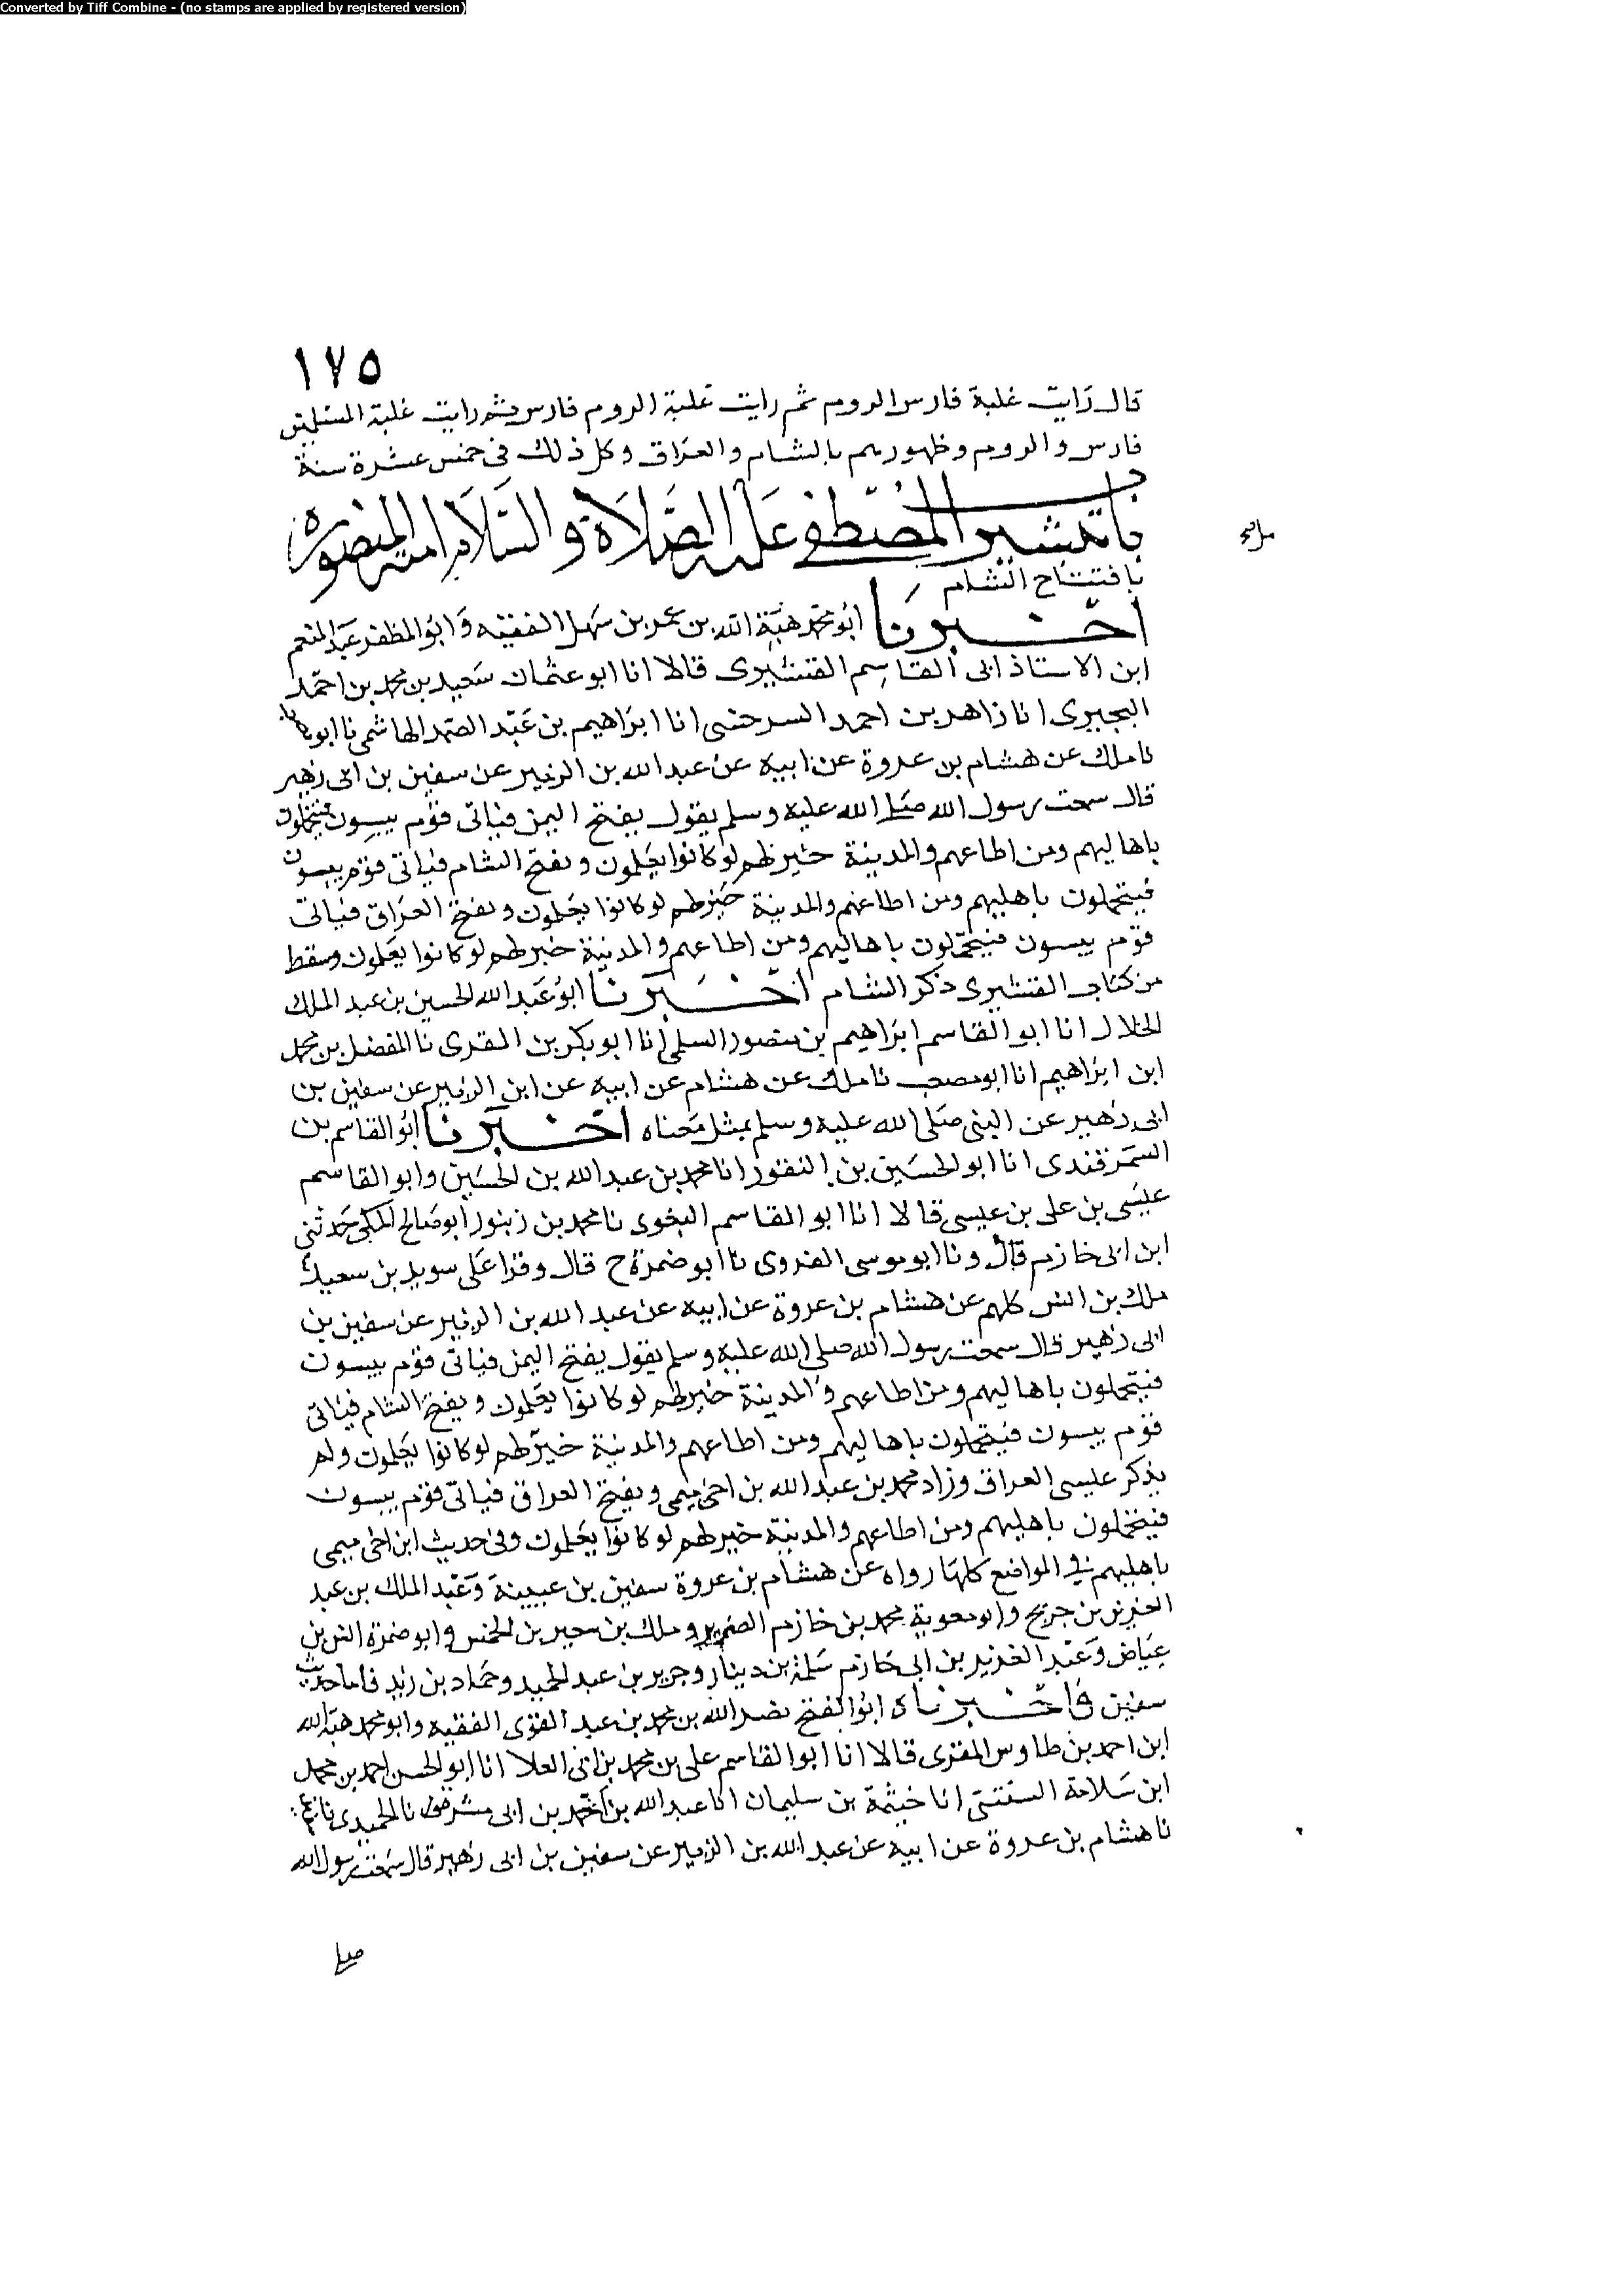 Converted by Tiff Combine - (no stamps are applied by registered version)
١٧٥
قال رايت غلبة فارس الروم ثم رايت غلبة الروم فارس ثم رايت غلبة المسلمين
فارس والروم وظهورهم بالشام والعراق وكل ذلك في خمس عشرة سنة
باب تبشير المصطفى عليه الصلاة والسلام امته المنصورة
بافتتاح الشام
اخبرنا ابو محمد هبة الله بن عمر بن سهل الفقيه وابو المظفر عبد المنعم
ابن الاستاذ ابى القاسم القشيرى قالا انا ابو عثمان سعيد بن محمد بن احمد
البحيرى انا زاهر بن احمد السرخسى انا ابراهيم بن عبد الصمد الهاشمى نا ابو
نا ملك عن هشام بن عروة عن ابيه عن عبد الله بن الزبير عن سفين بن ابى زهير
قال سمعت رسول الله صلى الله عليه وسلم يقول يفتح اليمن فياتى قوم يبسون فيتحملون
باهاليهم ومن اطاعهم والمدينة خير لهم لو كانوا يعلمون وتفتح الشام فياتى قوم يبسون
فيتحملون باهليهم ومن اطاعهم والمدينة خير لهم لو كانوا يعلمون وتفتح العراق فياتى
قوم يبسون فيتحملون باهاليهم ومن اطاعهم والمدينة خير لهم لو كانوا يعلمون وسقط
من كتاب القشيرى ذكر الشام اخبرنا ابو عبد الله الحسين بن عبد الملك
الخلال انا ابو القاسم ابراهيم بن منصور السلمى انا ابو بكر بن المقرى نا المفضل بن محمد
ابن ابراهيم انا ابو مصعب نا ملك عن هشام عن ابيه عن ابن الزبير عن سفين بن
ابى زهير عن النبى صلى الله عليه وسلم بمثل معناه اخبرنا ابو القاسم بن
السمرقندى انا ابو الحسين بن النقور انا محمد بن عبد الله بن الحسين وابو القاسم
عيسى بن على بن عيسى قالا انا ابو القاسم البغوى نا محمد بن زنبور ابو صالح المكى حدثنى
ابن ابى خازم قال ونا ابو موسى الفروى نا ابو ضمرة ح قال وقرا على سويد بن سعيد
ملك بن انس كلهم عن هشام بن عروة عن ابيه عن عبد الله بن الزبير عن سفين بن
ابى زهير قال سمعت رسول الله صلى الله عليه وسلم يقول يفتح اليمن فياتى قوم يبسون
فيتحملون باهاليهم ومن اطاعهم والمدينة خير لهم لو كانوا يعلمون ويفتح الشام فياتى
قوم يبسون فيتحملون باهاليهم ومن اطاعهم والمدينة خير لهم لو كانوا يعلمون ولم
يذكر عيسى العراق وزاد محمد بن عبد الله بن اخى ميمى ويفتح العراق فياتى قوم يبسون
فيتحملون باهليهم ومن اطاعهم والمدينة خير لهم لو كانوا يعلمون وفى حديث ابن اخى ميمى
باهليهم فى المواضع كلها رواه عن هشام بن عروة سفين بن عيينة وعبد الملك بن عبد
العزيز بن جريج وابو معوية محمد بن خازم الضرير وملك بن سعير بن الخمس وابو ضمرة انس بن
عياض وعبد العزيز بن ابى حازم سلمة بن دينار وجرير بن عبد الحميد وحماد بن زيد فاما حديث
سفين فاخبرناه ابو الفتح نصر الله بن محمد بن عبد القوى الفقيه وابو محمد هبة الله
ابن احمد بن طاوس المقرى قالا انا ابو القاسم على بن محمد بن ابى العلا انا ابو الحسن احمد بن محمد
ابن سلامة الستيتى انا خيثمة بن سليمان انا عبد الله بن احمد بن ابى مسرة نا الحميدى نا
نا هشام بن عروة عن ابيه عن عبد الله بن الزبير عن سفين بن ابى زهير قال سمعت رسول الله
صلى